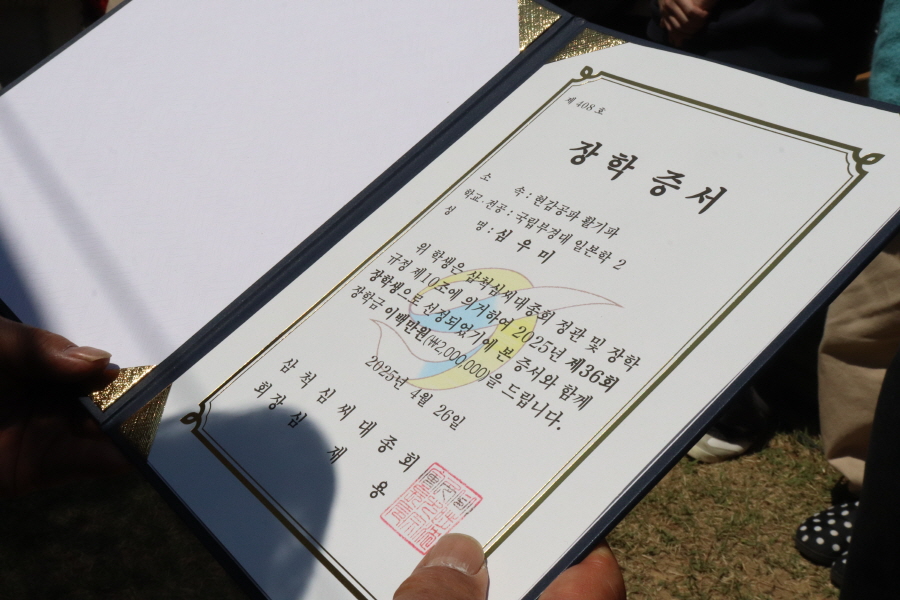 제 408 호
장 학 증 서
소 속 : 현감공파 활기파
학교·전공 : 국립부경대 일본학 2
성 명 : 심 우 미
위 학생은 삼척심씨대종회 정관 및 장학
규정 제10조에 의거하여 2025년 제36회
장학생으로 선정되었기에 본 증서와 함께
장학금 이백만원(₩2,000,000)을 드립니다.
2025년 4월 26일
삼 척 심 씨 대 종 회
회 장 심 재 용